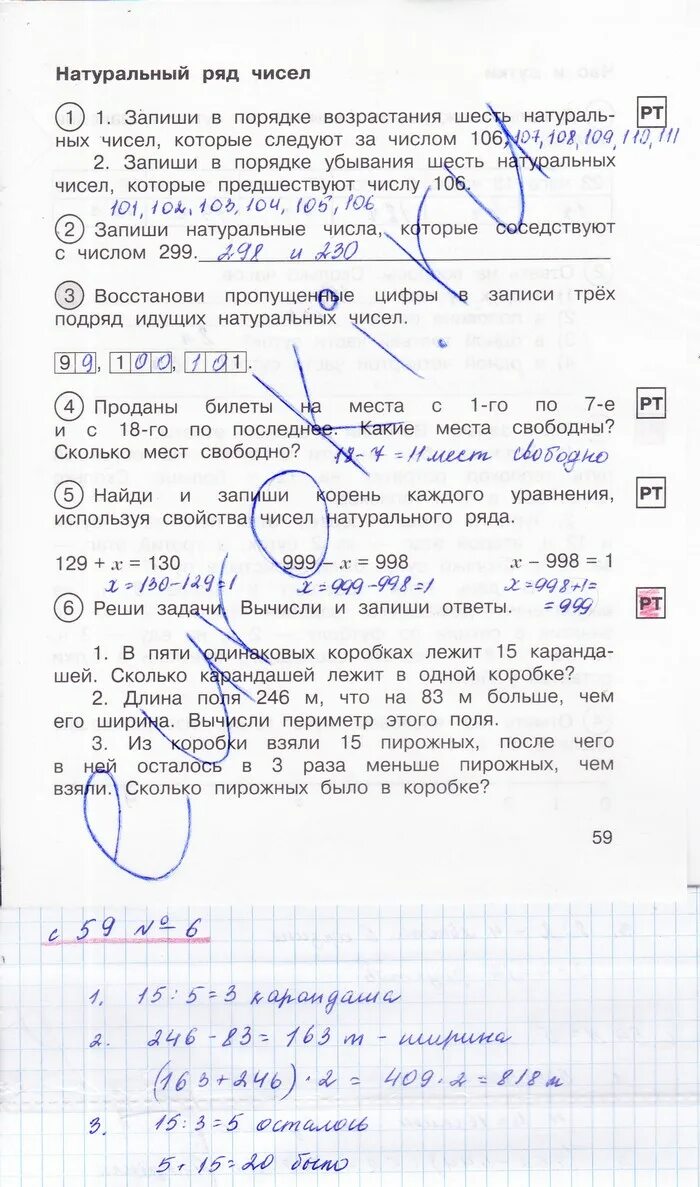 Натуральный ряд чисел
1 1. Запиши в порядке возрастания шесть натураль- РТ
ных чисел, которые следуют за числом 106, 107, 108, 109, 110, 111
2. Запиши в порядке убывания шесть натуральных
чисел, которые предшествуют числу 106.
101, 102, 103, 104, 105, 106
2 Запиши натуральные числа, которые соседствуют
с числом 299. 298 и 230
3 Восстанови пропущенные цифры в записи трёх
подряд идущих натуральных чисел.
99, 100, 101.
4 Проданы билеты на места с 1-го по 7-е РТ
и с 18-го по последнее. Какие места свободны?
Сколько мест свободно? 18-7=11 мест свободно
5 Найди и запиши корень каждого уравнения, РТ
используя свойства чисел натурального ряда.
129 + x = 130 999 - x = 998 x - 998 = 1
x=130-129=1 x=999-998=1 x=998+1=
6 Реши задачи. Вычисли и запиши ответы. =999 РТ
1. В пяти одинаковых коробках лежит 15 каранда-
шей. Сколько карандашей лежит в одной коробке?
2. Длина поля 246 м, что на 83 м больше, чем
его ширина. Вычисли периметр этого поля.
3. Из коробки взяли 15 пирожных, после чего
в ней осталось в 3 раза меньше пирожных, чем
взяли. Сколько пирожных было в коробке?
59
с 59 № 6
1. 15:5=3 карандаша
2. 246-83=163 м - ширина
(163+246)·2 = 409·2=818 м
3. 15:3=5 осталось
5+15=20 было